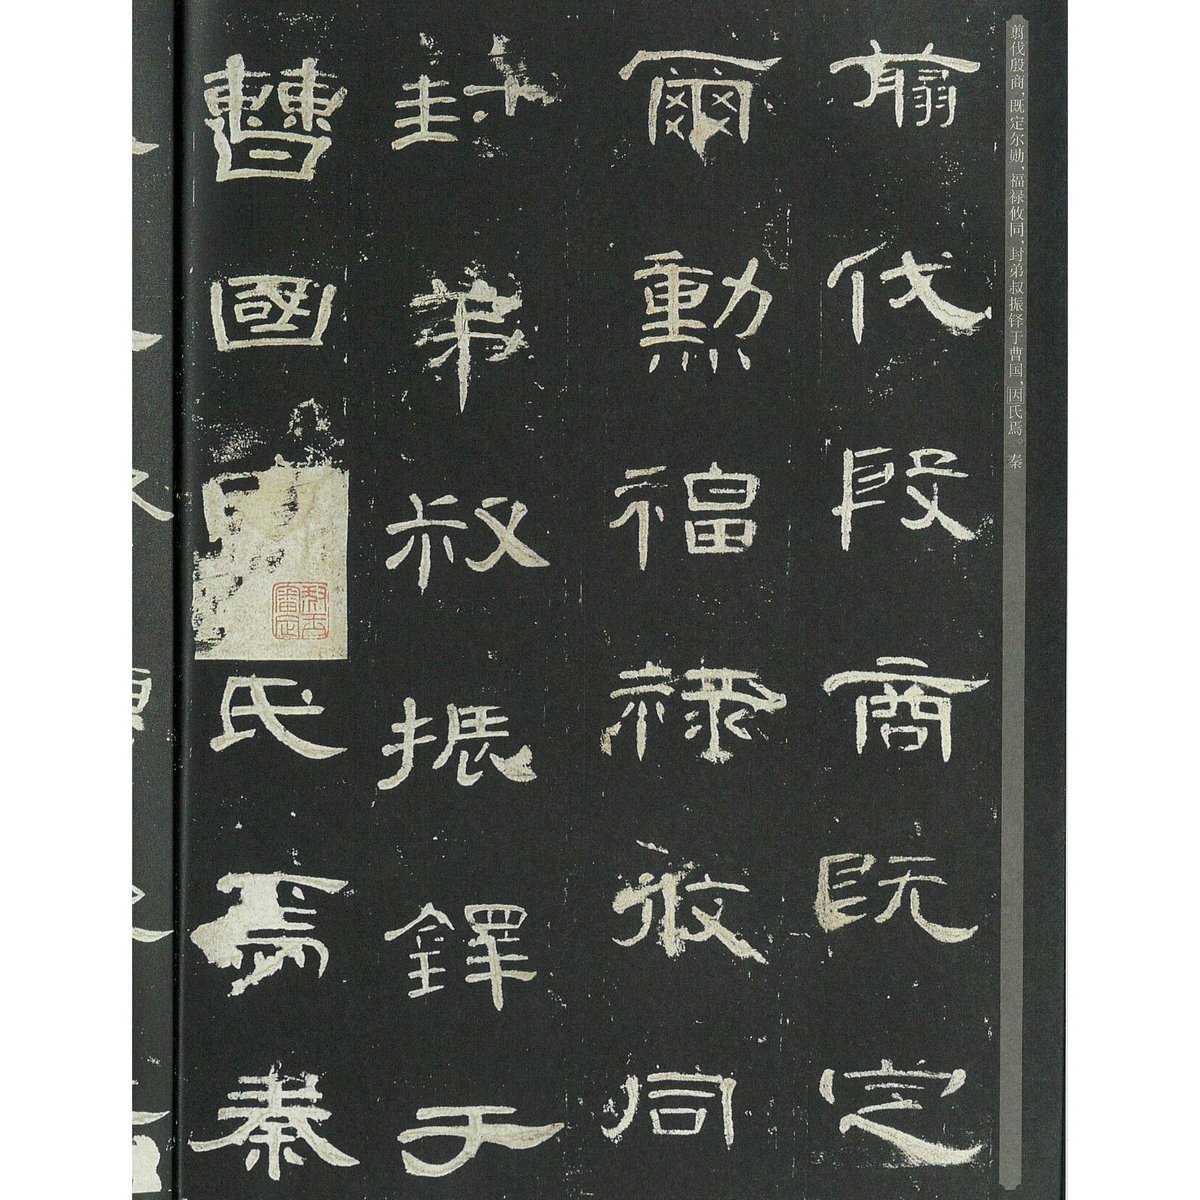 翦伐殷商既定
爾勲福禄攸同
封弟叔振鐸于
曹國氏焉秦
翦伐殷商，既定尔勋，福禄攸同，封弟叔振铎于曹国，因氏焉。秦